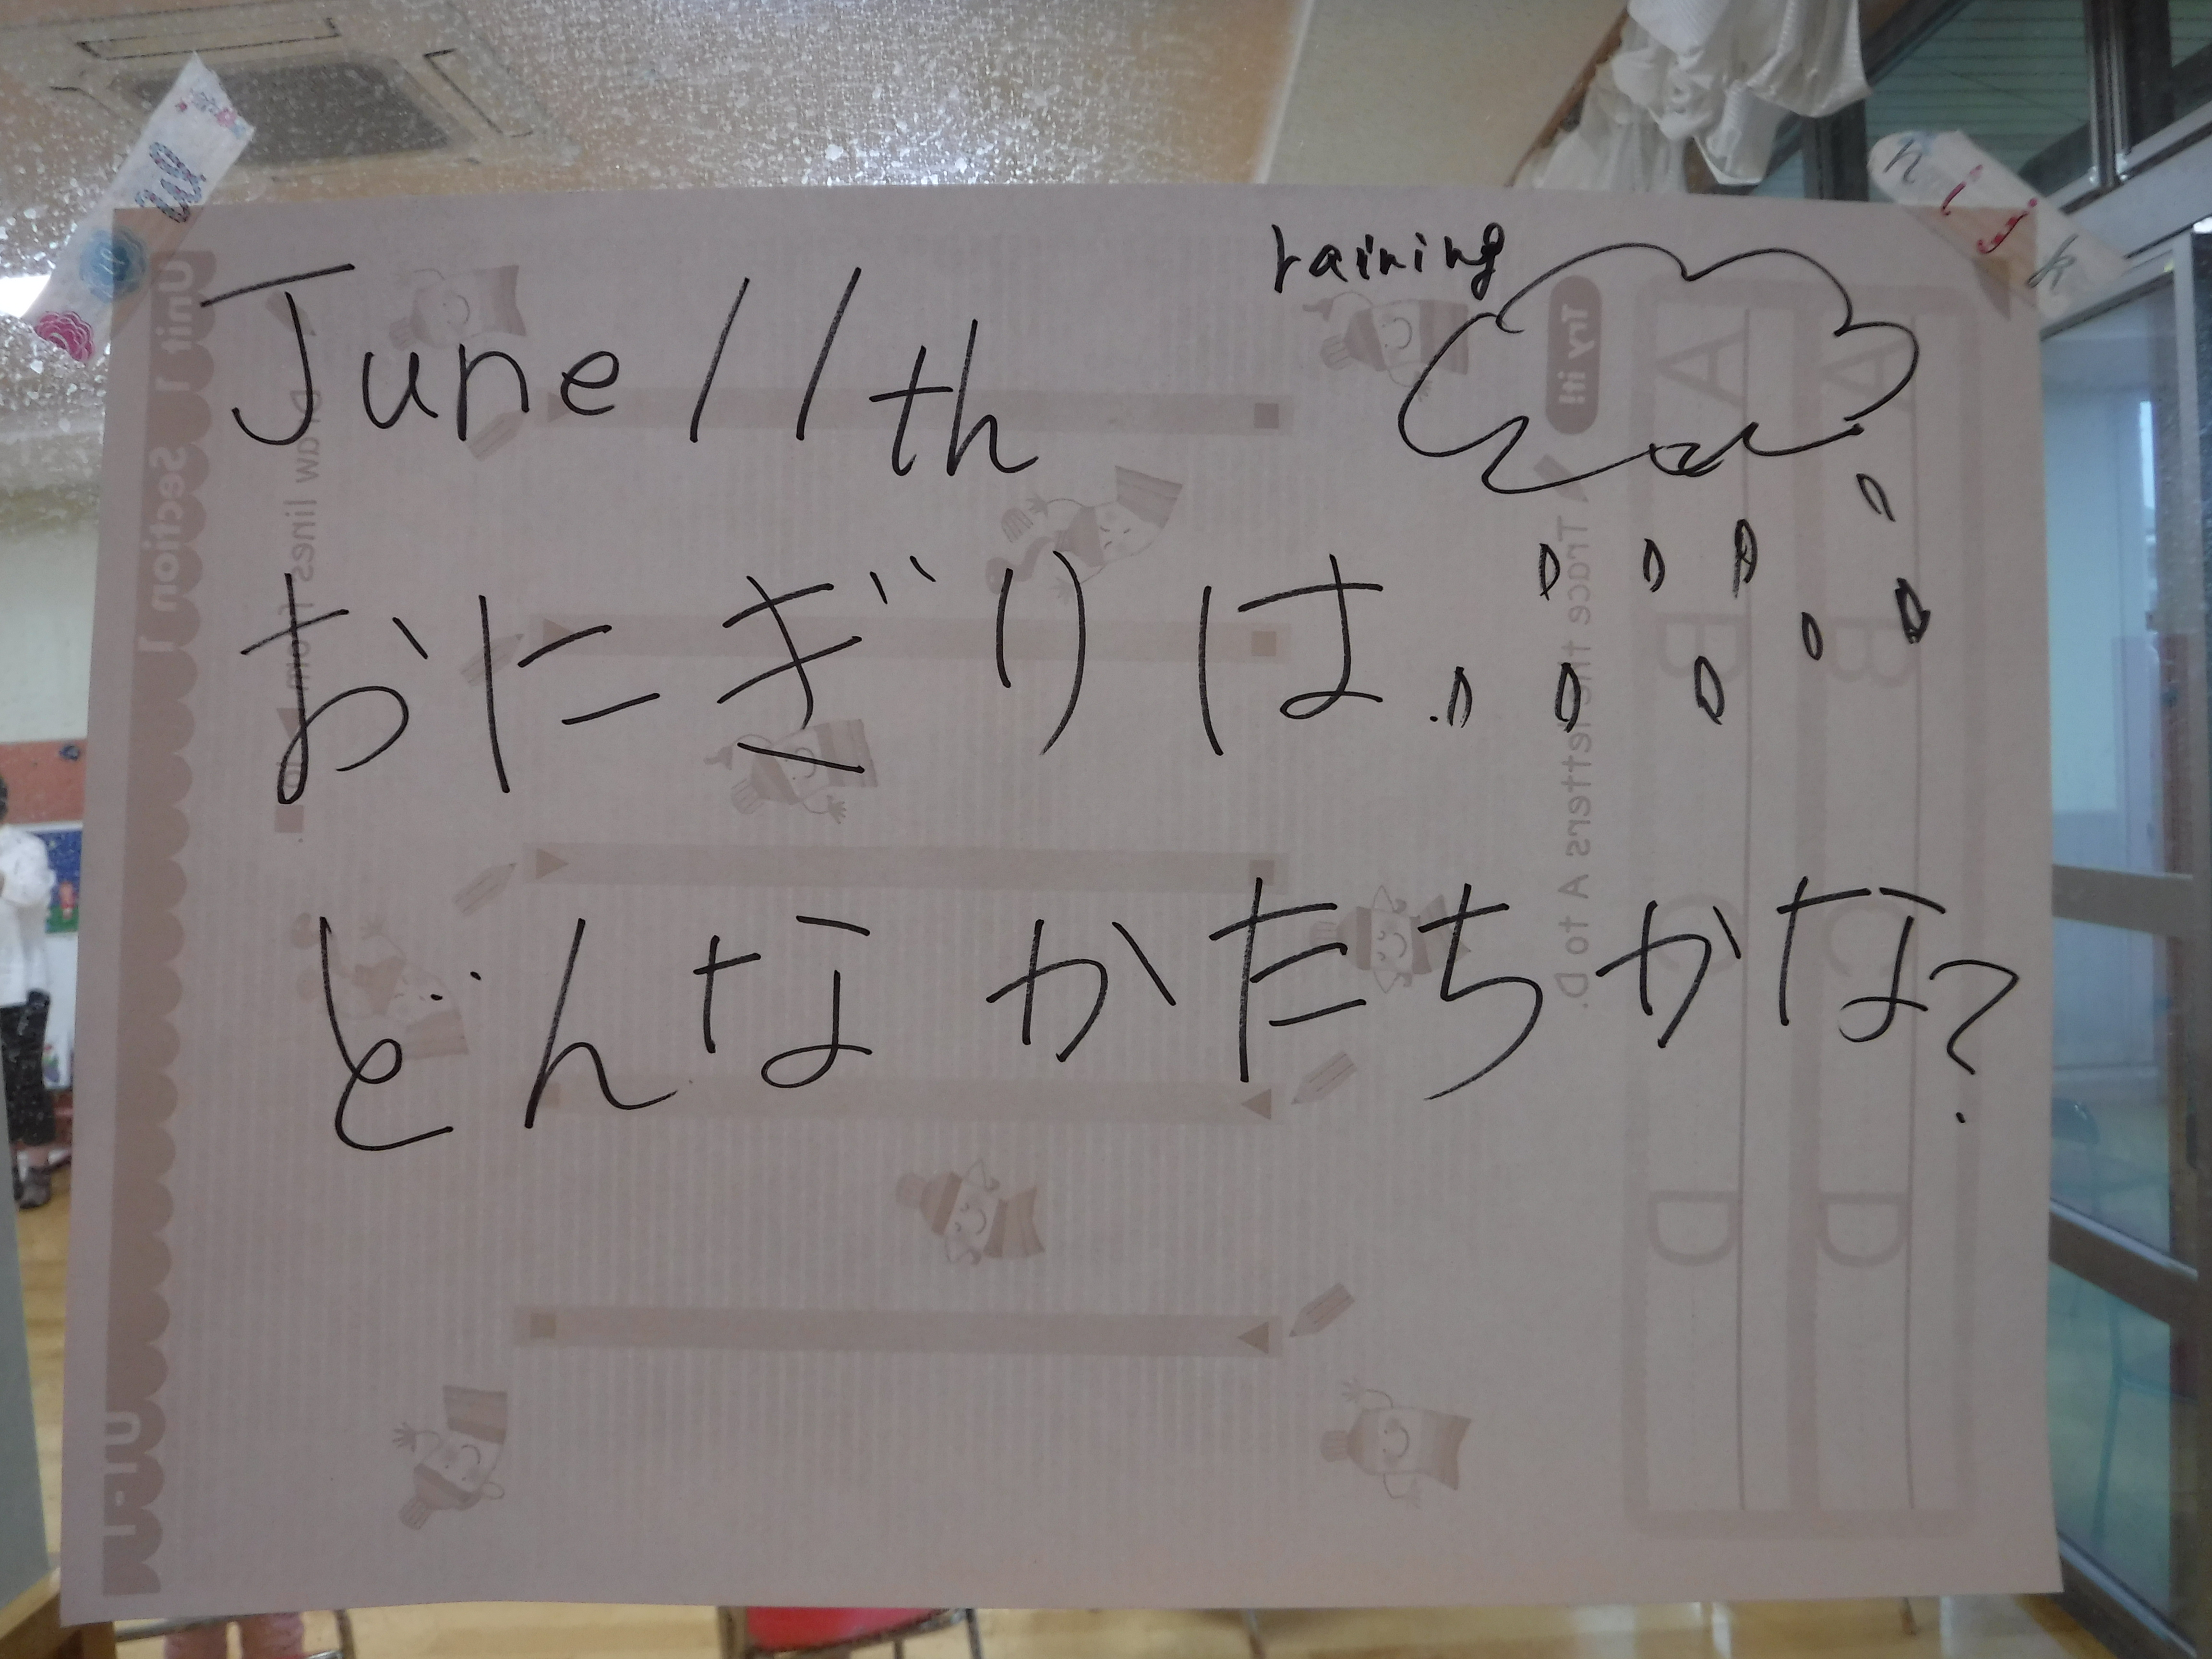 June 11th
raining
おにぎりは
どんなかたちかな?
Unit 1 Section 1
Draw lines from
Try it!
Trace the letters A to D.
A A
B B
C C
D D
h i j k